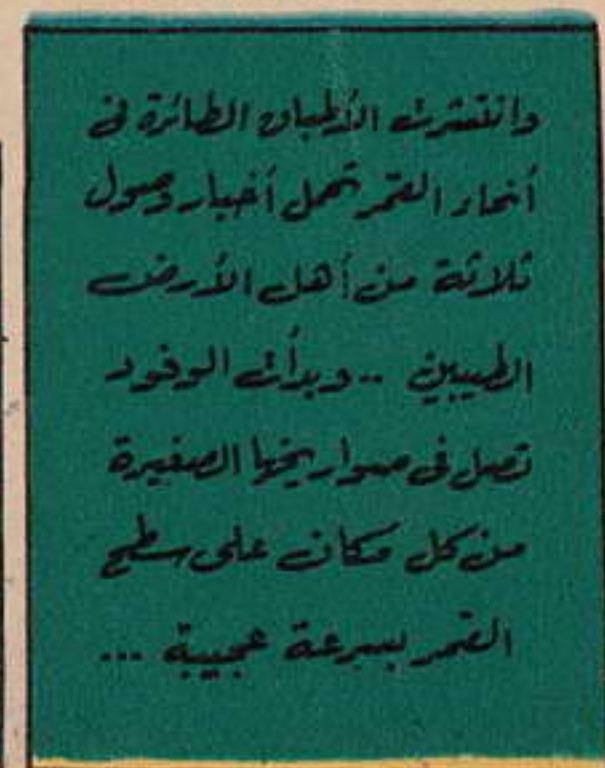 وانتشرت الأطباق الطائرة فى
أنحاء القمر تحمل أخبار وصول
ثلاثة من أهل الأرض
الطيبين .. وبدأت الوفود
تصل فى صواريخها الصغيرة
من كل مكان على سطح
القمر بسرعة عجيبة ...